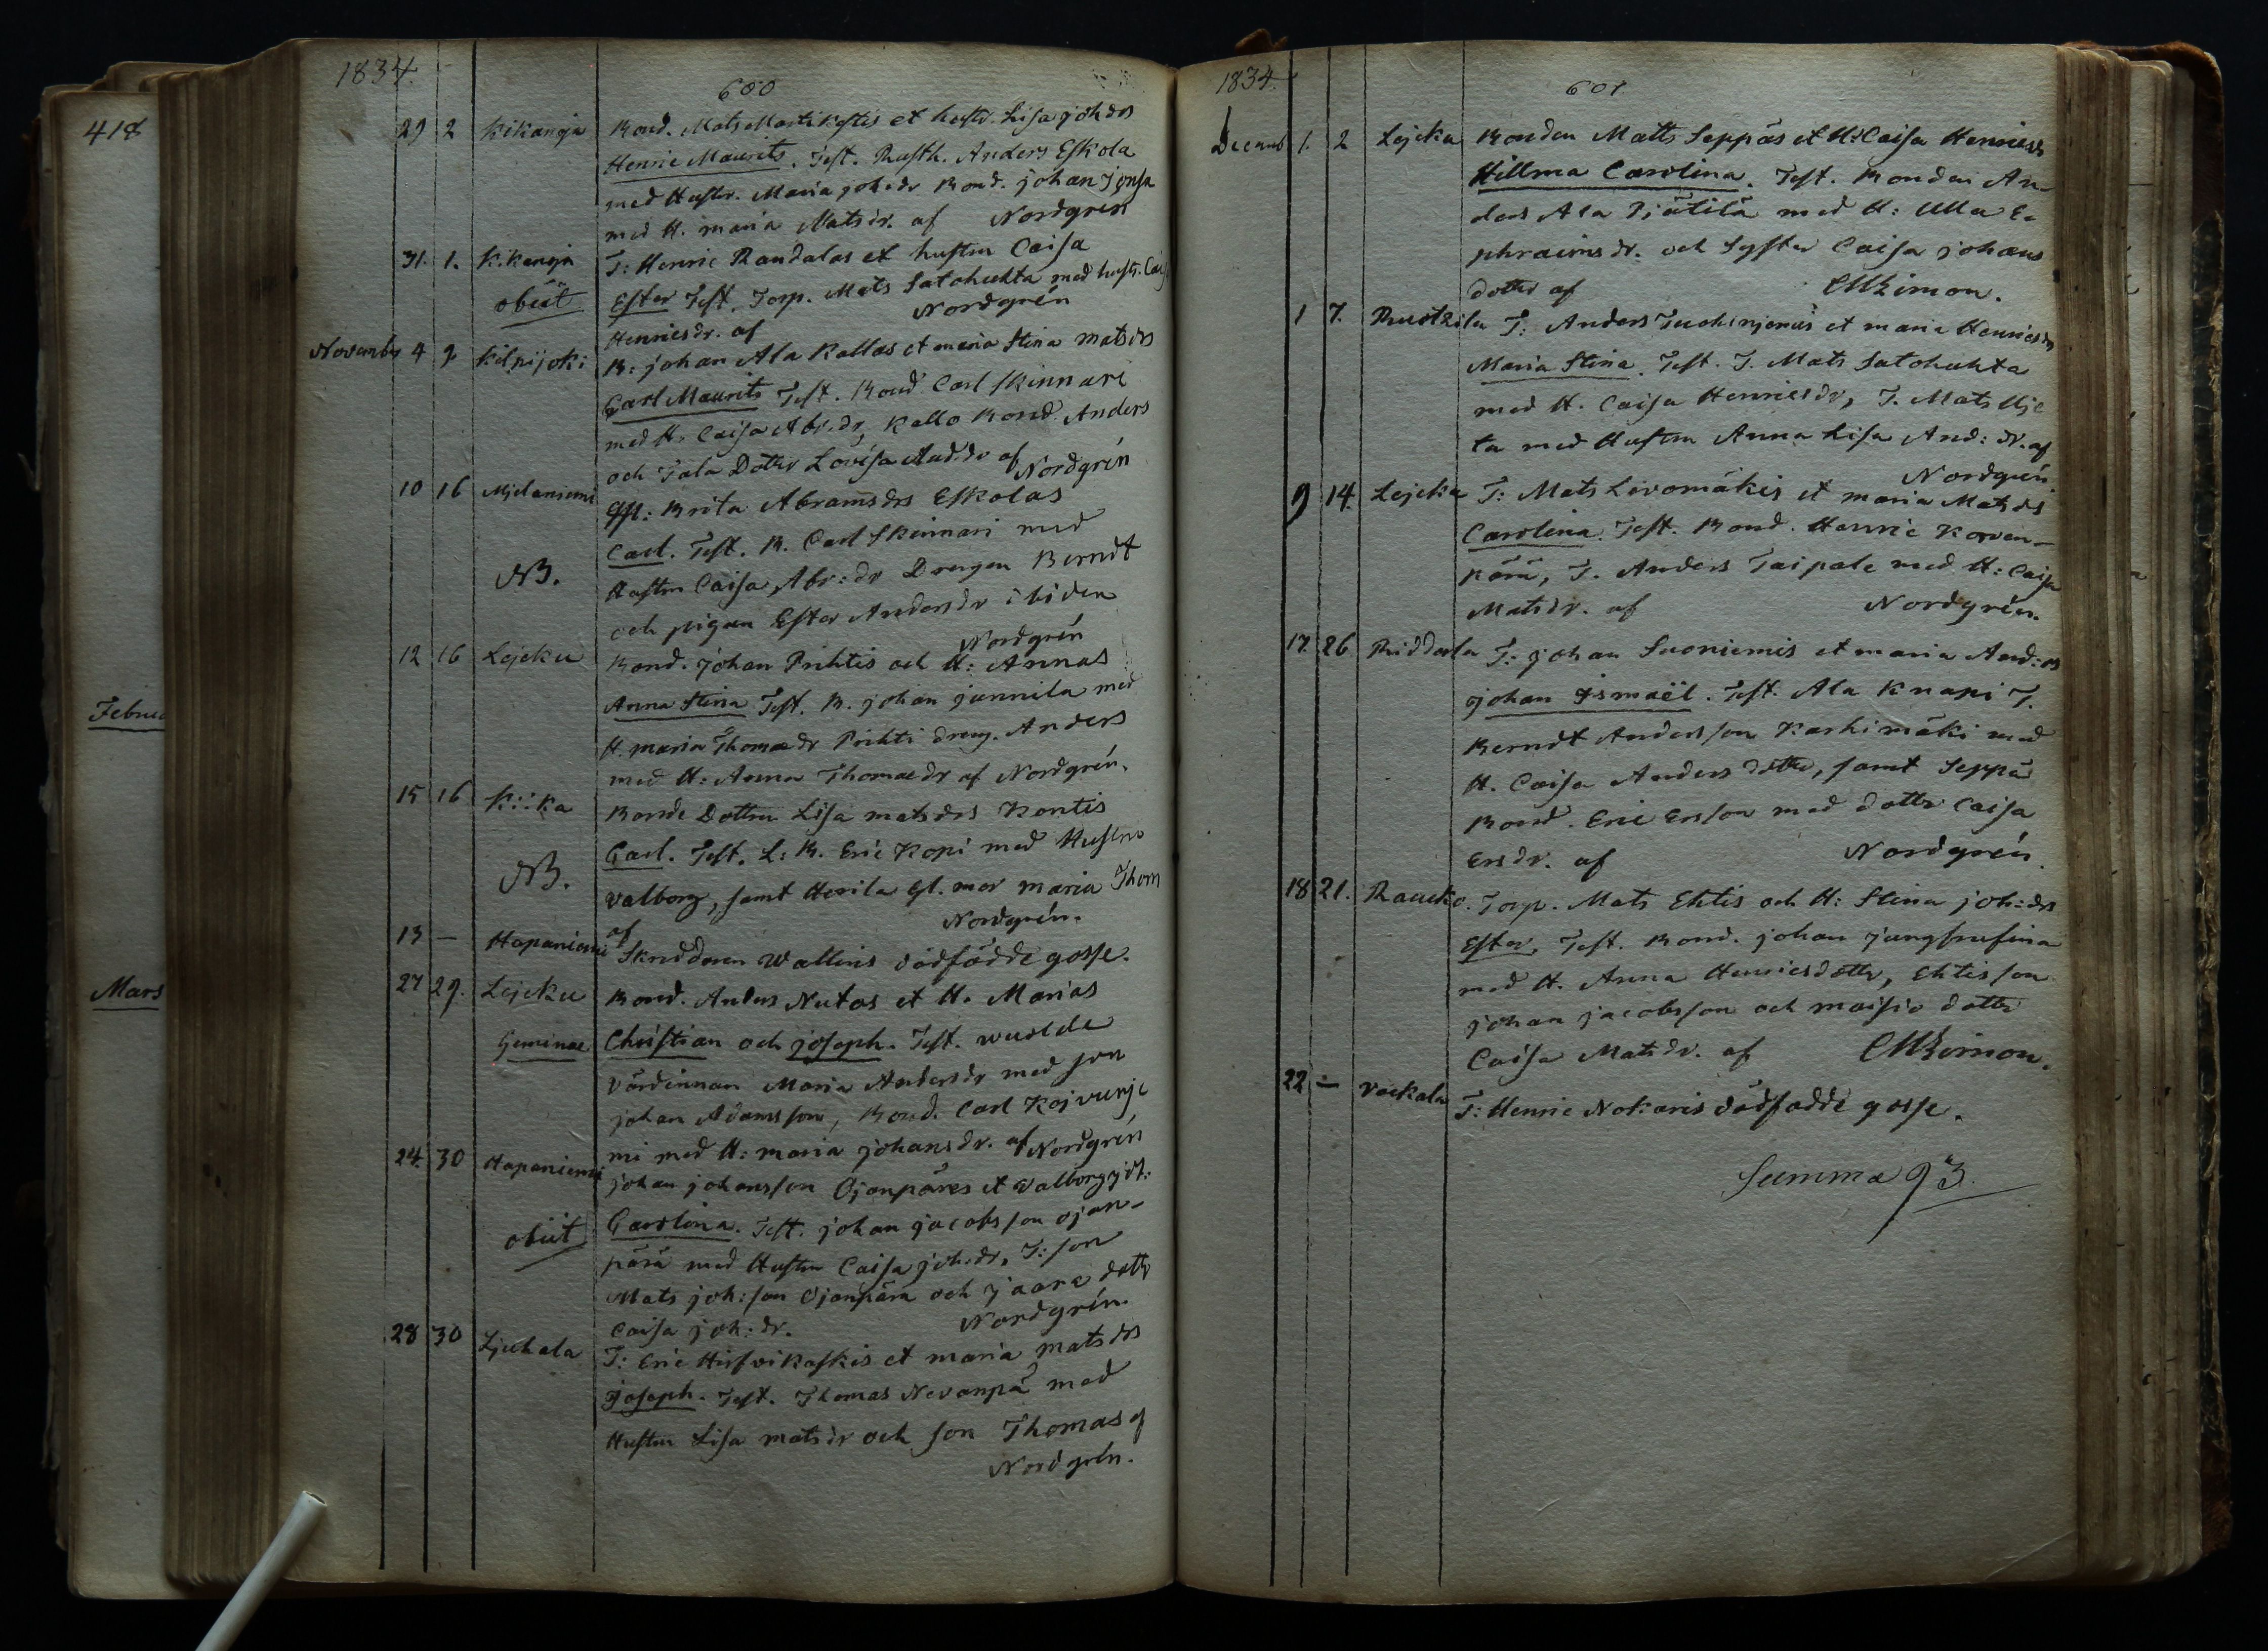 418
Februa
Mars
1834.
600
29 2 Kikanoja Bond. Mats Martikestis et hustr. Lisa johdrs
Henric Maurits. Test. Rusth. Anders Eskola
med Hustr. Maria johdr Bond. johan
med H. maria Matsdr. af Nordgrén
31. 1. Kikanoja T: Henric Randalas et hustru Caisa
obiit Ester Test. Torp. Mats Satohukta med hustr. Caisa
Henricsdr. af Nordgrén
November 4 9 Kilpijoki B: johan Ala Kallas et maria Stina matsdrs
Carl Maurits Test. Bond Carl Skinnari
med H. Caisa Abr.dr, Kallo Bond. Anders
och Tala Dotter Lovisa And.dr af Nordgrén
10 16 Mjelaniemi Qpl: Brita Abramsdrs Eskolas
Carl. Test. B. Carl Skinnari med
NB. Hustru Caisa Abr:dr Drengen Berndt
och pigan Ester Andersdr ibidem
Nordgrén
12 16 Lejcku Bond. johan Prihtis och H: Annas
Anna Stina Test. B. johan junnila med
H. maria Thomædr Prihti dreng. Anders
med H: Anna Thomædr af Nordgrén.
15 16 Kiika Bonde Dottren Lisa matsdrs Kontis
Carl. Test. L: B. Eric Kopi med Hustru
NB. Valborg, samt Herila Gl. mor maria Thom
af Nordgrén.
13 — Hapaniemi Skreddaren Wallins dödfödde gosse.
27 29. Lejcku Bond. Anders Nutas et H. Marias
Geminae Christian och joseph. Test. wuolde
värdinnan Maria Andersdr med son
johan Adamsson, Bond. Carl Kojvunje
mi med H: maria johansdr. af Nordgrén
24. 30 Hapaniemi johan johansson Ojanpäres et Valborg
obiit Carolina. Test. johan jacobsson ojan-
pärä med Hustru Caisa joh:dr, T: son
Mats joh:son Ojanpära och jaara dotte
Caisa joh:dr. Nordgrén.
28 30 Ljuhala T: Eric Hirsvikoskis et maria matsdrs
Joseph. Test. Thomas Nevanpä med
Hustru Lisa matsdr och son Thomas af
Nordgrén.
1834.
601
Decemb 1. 2 Lejcku Bonden Matts Seppäs et H: Caisa Henricsdrs
Hillma Carolina. Test. Bonden An-
ders Ala Pjätilä med H: Ulla E-
phraimsdr. och Syster Caisa johans
dotter af CMZimon.
1 7. Ruotzila T: Anders et maria Henricsdrs
Maria Stina. Test. T. Mats Satohukta
med H. Caisa Henricsdr, T. Mats Uje
ta med Hustru Anna Lisa And: dr. af
Nordgrén
9 14. Lejcku T: Mats Livomäkis et maria Matsdrs
Carolina. Test. Bond. Henric Korven-
kärä, T. Anders Taipale med H: Caisa
Matsdr. af Nordgrén.
17 26 Riddala T: johan Suoniemis et maria And:drs
johan Ismaël. Test. Ala Knapi T.
Berndt Andersson Karhimäki med
H. Caisa Andersdotter, samt Seppä
Bond. Eric Ersson med dotter Caisa
Ersdr. af Nordgrén.
18 21. Raucko. Torp. Mats Ehtis och H: Stina joh:drs
Ester, Test. Bond. johan
med H. Anna Henricsdotter, Ehtis son
johan jacobsson och moisio dotter
Caisa Matsdr. af CMZimon.
22 — Vackala T: Henric Nokaris dödfödde gosse.
Summa 93.